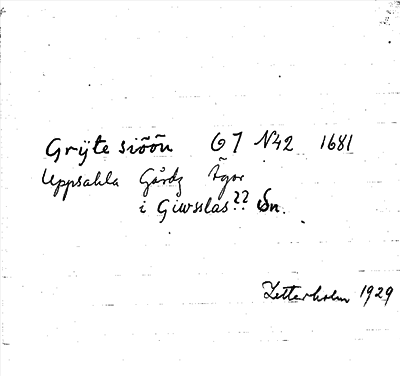 Grÿte siöön G7 N42 1681
Uppsahla Gårdz Ägor
i Giwsslas?? Sn.
Zetterholm 1929